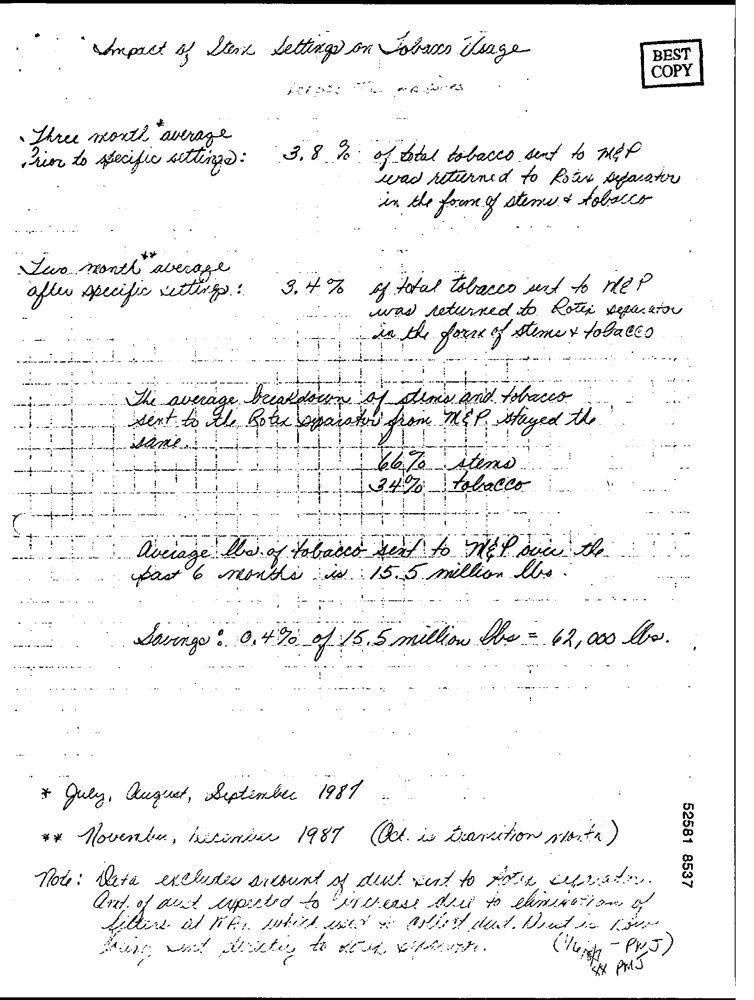 Impact of Stem Settings on Tobacco Usage
BEST
COPY
Three month * average
Prior to specific settings: 3.8 % of total tobacco sent to M&P
was returned to Rotex separator
in the form of stems & tobacco
Two month ** average
after specific settings: 3.4 % of total tobacco sent to M&P
was returned to Rotex separator
in the form of stems & tobacco
The average breakdown of stems and tobacco
sent to the Rotex separator from M&P stayed the
same.
66% stems
34% tobacco
Average lbs. of tobacco sent to M&P over the
past 6 months is 15.5 million lbs.
Savings: 0.4% of 15.5 million lbs = 62,000 lbs.
* July, August, September 1987
** November, December 1987 (Oct. is transition month)
Note: Data excludes amount of dust sent to Rotex separator.
Amt. of dust expected to increase due to elimination of
filters at which used to collect dust. Dust is now
being sent directly to rotex separator.
- PMJ)
PMJ
52581 8537